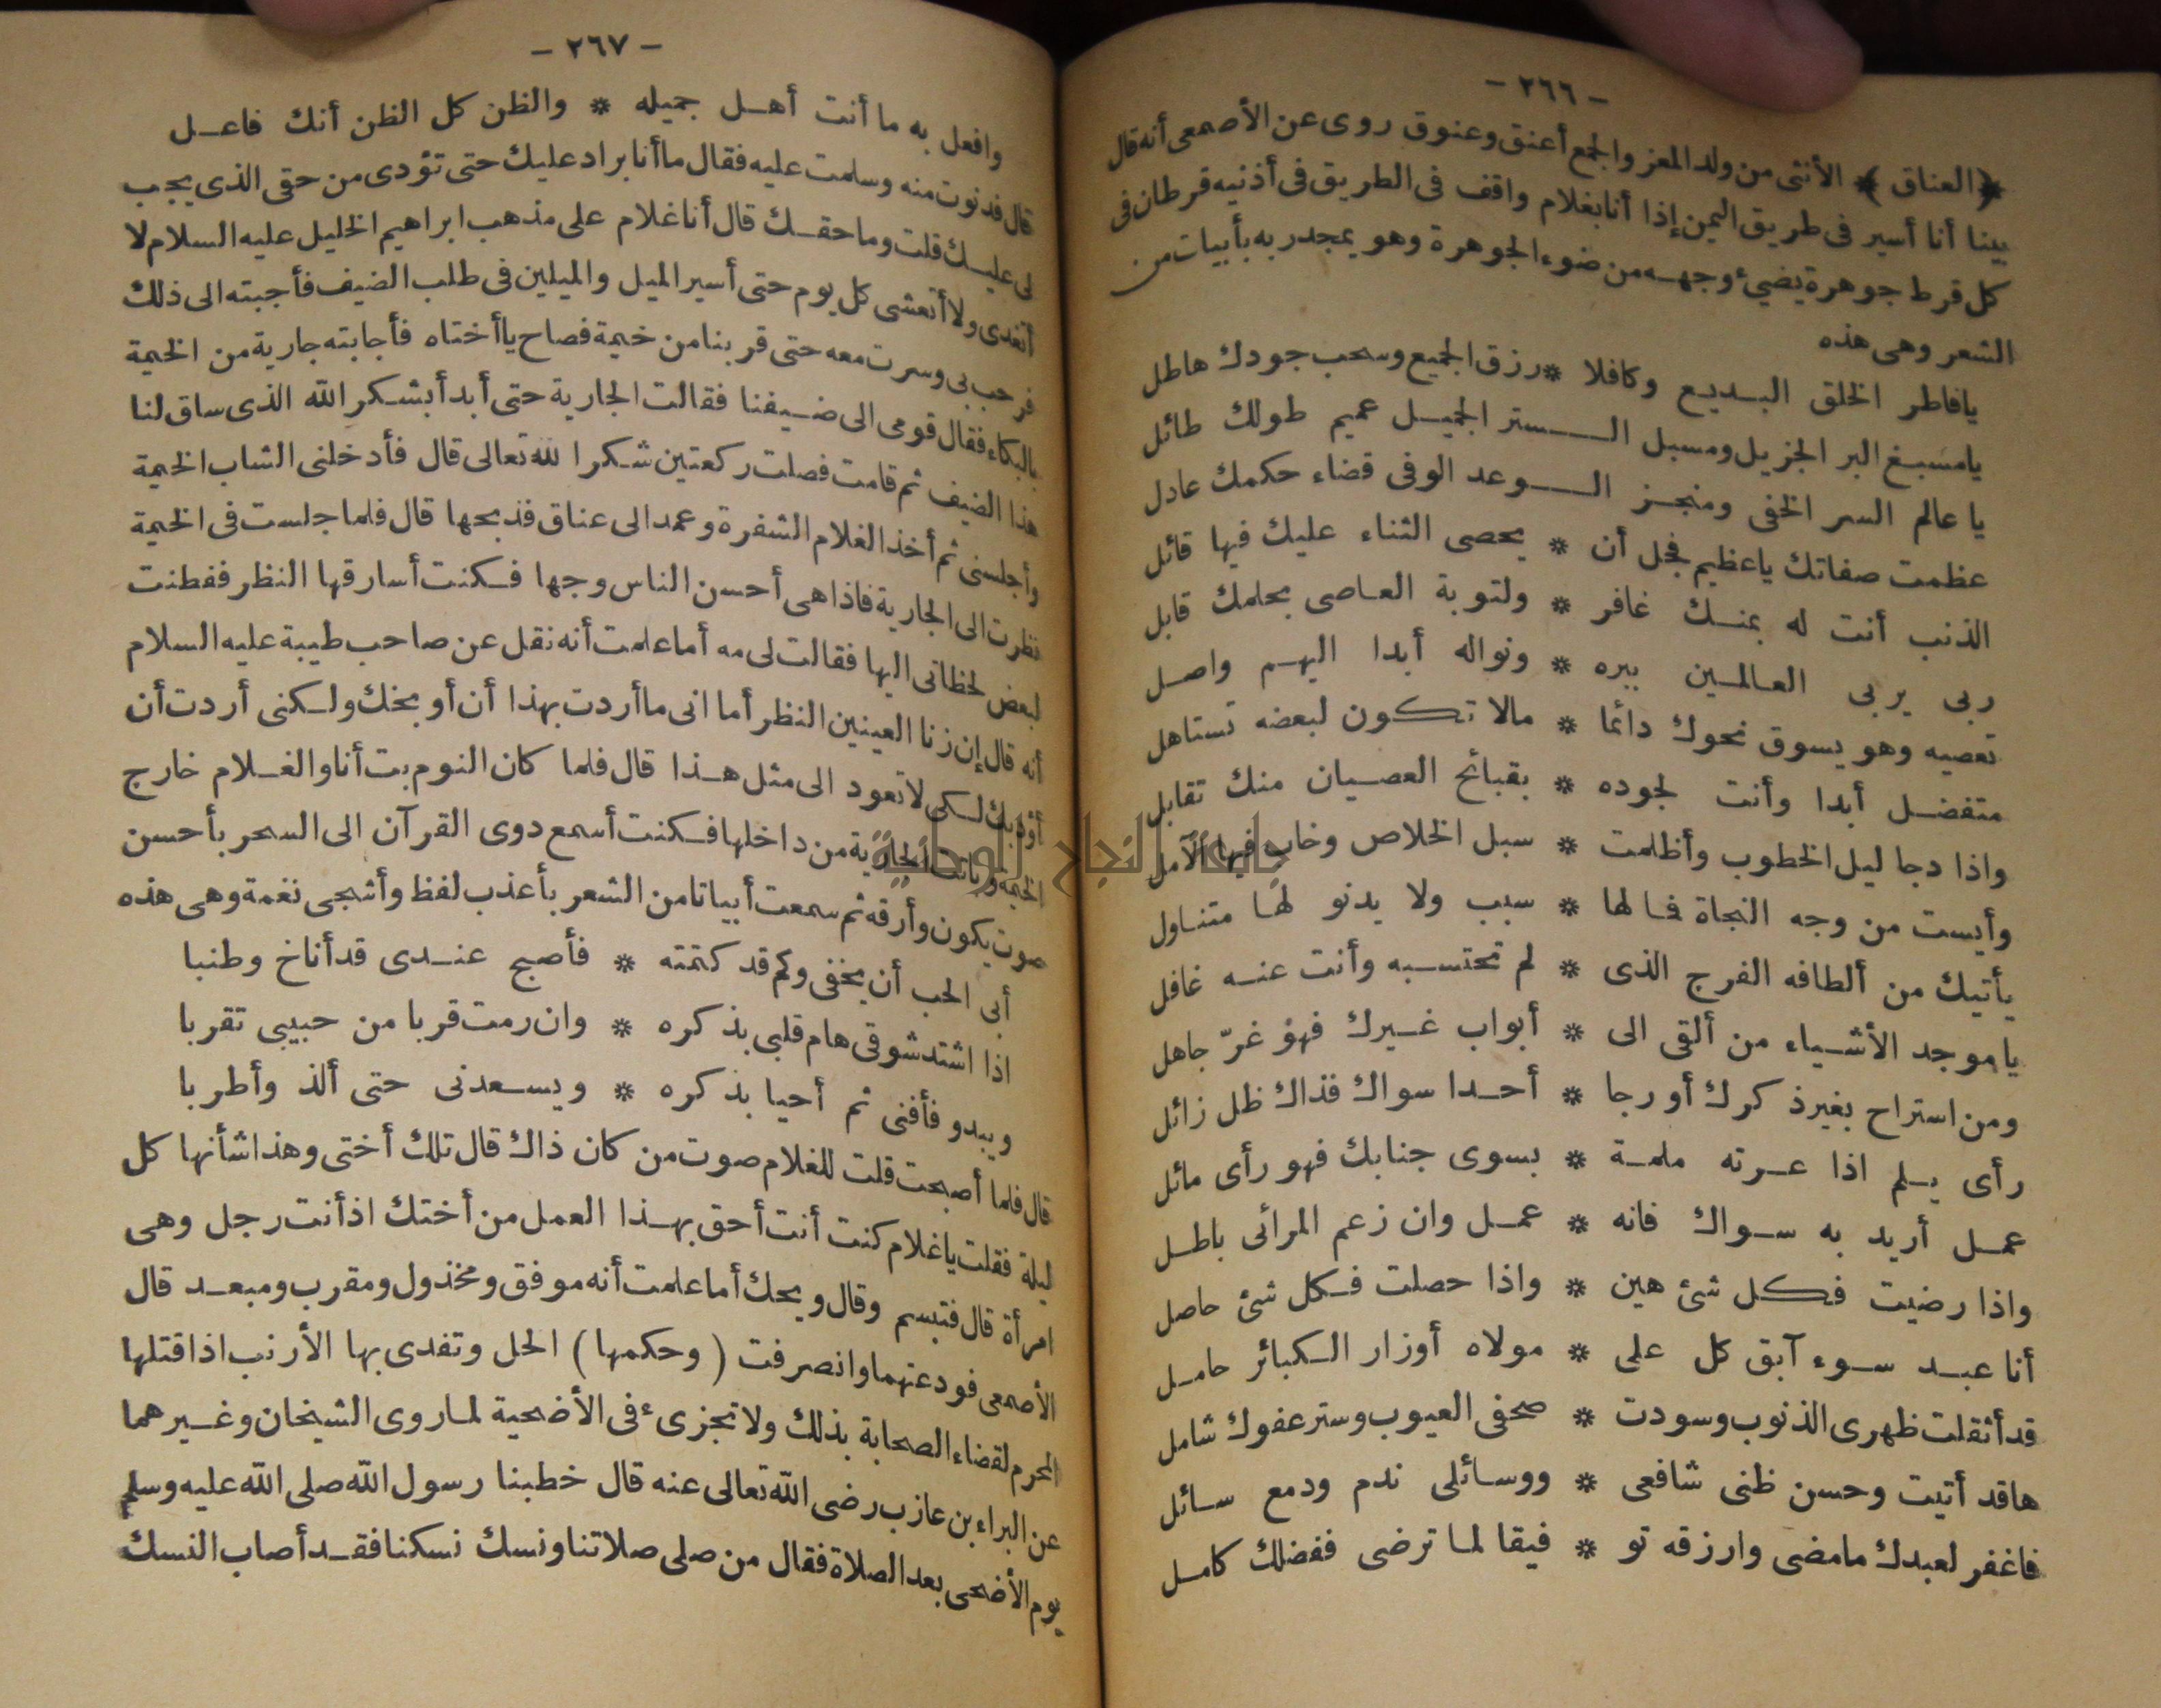 - ٢٦٦ -
﴿العناق﴾ الأنثى من ولد المعز والجمع أعنق وعنوق روى عن الأصمعى أنه قال
بينا أنا أسير فى طريق اليمن إذا أنا بغلام واقف فى الطريق فى أذنيه قرطان فى
كل قرط جوهرة يضىء وجهه من ضوء الجوهرة وهو يمجد ربه بأبيات من
الشعر وهى هذه
يافاطر الخلق البديع وكافلا * رزق الجميع وسحب جودك هاطل
يامسبغ البر الجزيل ومسبل الستر الجميل عميم طولك طائل
يا عالم السر الخفى ومنجز الوعد الوفى قضاء حكمك عادل
عظمت صفاتك ياعظيم فجل أن * يحصى الثناء عليك فيها قائل
الذنب أنت له بمنك غافر * ولتوبة العاصى بحلمك قابل
ربى يربى العالمين ببره * ونواله أبدا اليهم واصل
تعصيه وهو يسوق نحوك دائما * مالا تكون لبعضه تستاهل
متفضل أبدا وأنت لجوده * بقبائح العصيان منك تقابل
واذا دجا ليل الخطوب وأظلمت * سبل الخلاص وخاب فيها الآمل
وأيست من وجه النجاة فما لها * سبب ولا يدنو لها متناول
يأتيك من ألطافه الفرج الذى * لم تحتسبه وأنت عنه غافل
ياموجد الأشياء من ألقى الى * أبواب غيرك فهو غرّ جاهل
ومن استراح بغير ذكرك أو رجا * أحدا سواك فذاك ظل زائل
رأى يلم اذا عرته ملمة * بسوى جنابك فهو رأى مائل
عمل أريد به سواك فانه * عمل وان زعم المرائى باطل
واذا رضيت فكل شئ هين * واذا حصلت فكل شئ حاصل
أنا عبد سوء آبق كل على * مولاه أوزار الكبائر حامل
قد أثقلت ظهرى الذنوب وسودت * صحفى العيوب وستر عفوك شامل
هاقد أتيت وحسن ظنى شافعى * ووسائلى ندم ودمع سائل
فاغفر لعبدك مامضى وارزقه تو * فيقا لما ترضى ففضلك كامل
- ٢٦٧ -
وافعل به ما أنت أهل جميله * والظن كل الظن أنك فاعل
قال فدنوت منه وسلمت عليه فقال ما أنا براد عليك حتى تؤدى من حقى الذى يجب
لى عليك قلت وما حقك قال أنا غلام على مذهب ابراهيم الخليل عليه السلام لا
أتغدى ولا أتعشى كل يوم حتى أسير الميل والميلين فى طلب الضيف فأجبته الى ذلك
فرحب بى وسرت معه حتى قربنا من خيمة فصاح يا أختاه فأجابته جارية من الخيمة
بالبكاء فقال قومى الى ضيفنا فقالت الجارية حتى أبدأ بشكر الله الذى ساق لنا
هذا الضيف ثم قامت فصلت ركعتين شكرا لله تعالى قال فأدخلنى الشاب الخيمة
وأجلسنى ثم أخذ الغلام الشفرة وعمد الى عناق فذبحها قال فلما جلست فى الخيمة
نظرت الى الجارية فاذا هى أحسن الناس وجها فكنت أسارقها النظر ففطنت
لبعض لحظاتى اليها فقالت لى مه أما علمت أنه نقل عن صاحب طيبة عليه السلام
أنه قال إن زنا العينين النظر أما انى ما أردت بهذا أن أوبخك ولكنى أردت أن
أؤدبك لكى لا تعود الى مثل هذا قال فلما كان النوم بت أنا والغلام خارج
الخيمة وباتت الجارية من داخلها فكنت أسمع دوى القرآن الى السحر بأحسن
صوت يكون وأرقه ثم سمعت أبياتا من الشعر بأعذب لفظ وأشجى نغمة وهى هذه
أبى الحب أن يخفى وكم قد كتمته * فأصبح عندى قد أناخ وطنبا
اذا اشتد شوقى هام قلبى بذكره * وان رمت قربا من حبيبى تقربا
ويبدو فأفنى ثم أحيا بذكره * ويسعدنى حتى ألذ وأطربا
قال فلما أصبحت قلت للغلام صوت من كان ذاك قال تلك أختى وهذا شأنها كل
ليلة فقلت ياغلام كنت أنت أحق بهذا العمل من أختك اذ أنت رجل وهى
امرأة قال فتبسم وقال ويحك أما علمت أنه موفق ومخذول ومقرب ومبعد قال
الأصمعى فودعتهما وانصرفت (وحكمها) الحل وتفدى بها الأرنب اذا قتلها
المحرم لقضاء الصحابة بذلك ولا تجزىء فى الأضحية لما روى الشيخان وغيرهما
عن البراء بن عازب رضى الله تعالى عنه قال خطبنا رسول الله صلى الله عليه وسلم
يوم الأضحى بعد الصلاة فقال من صلى صلاتنا ونسك نسكنا فقد أصاب النسك
جامعة النجاح الوطنية